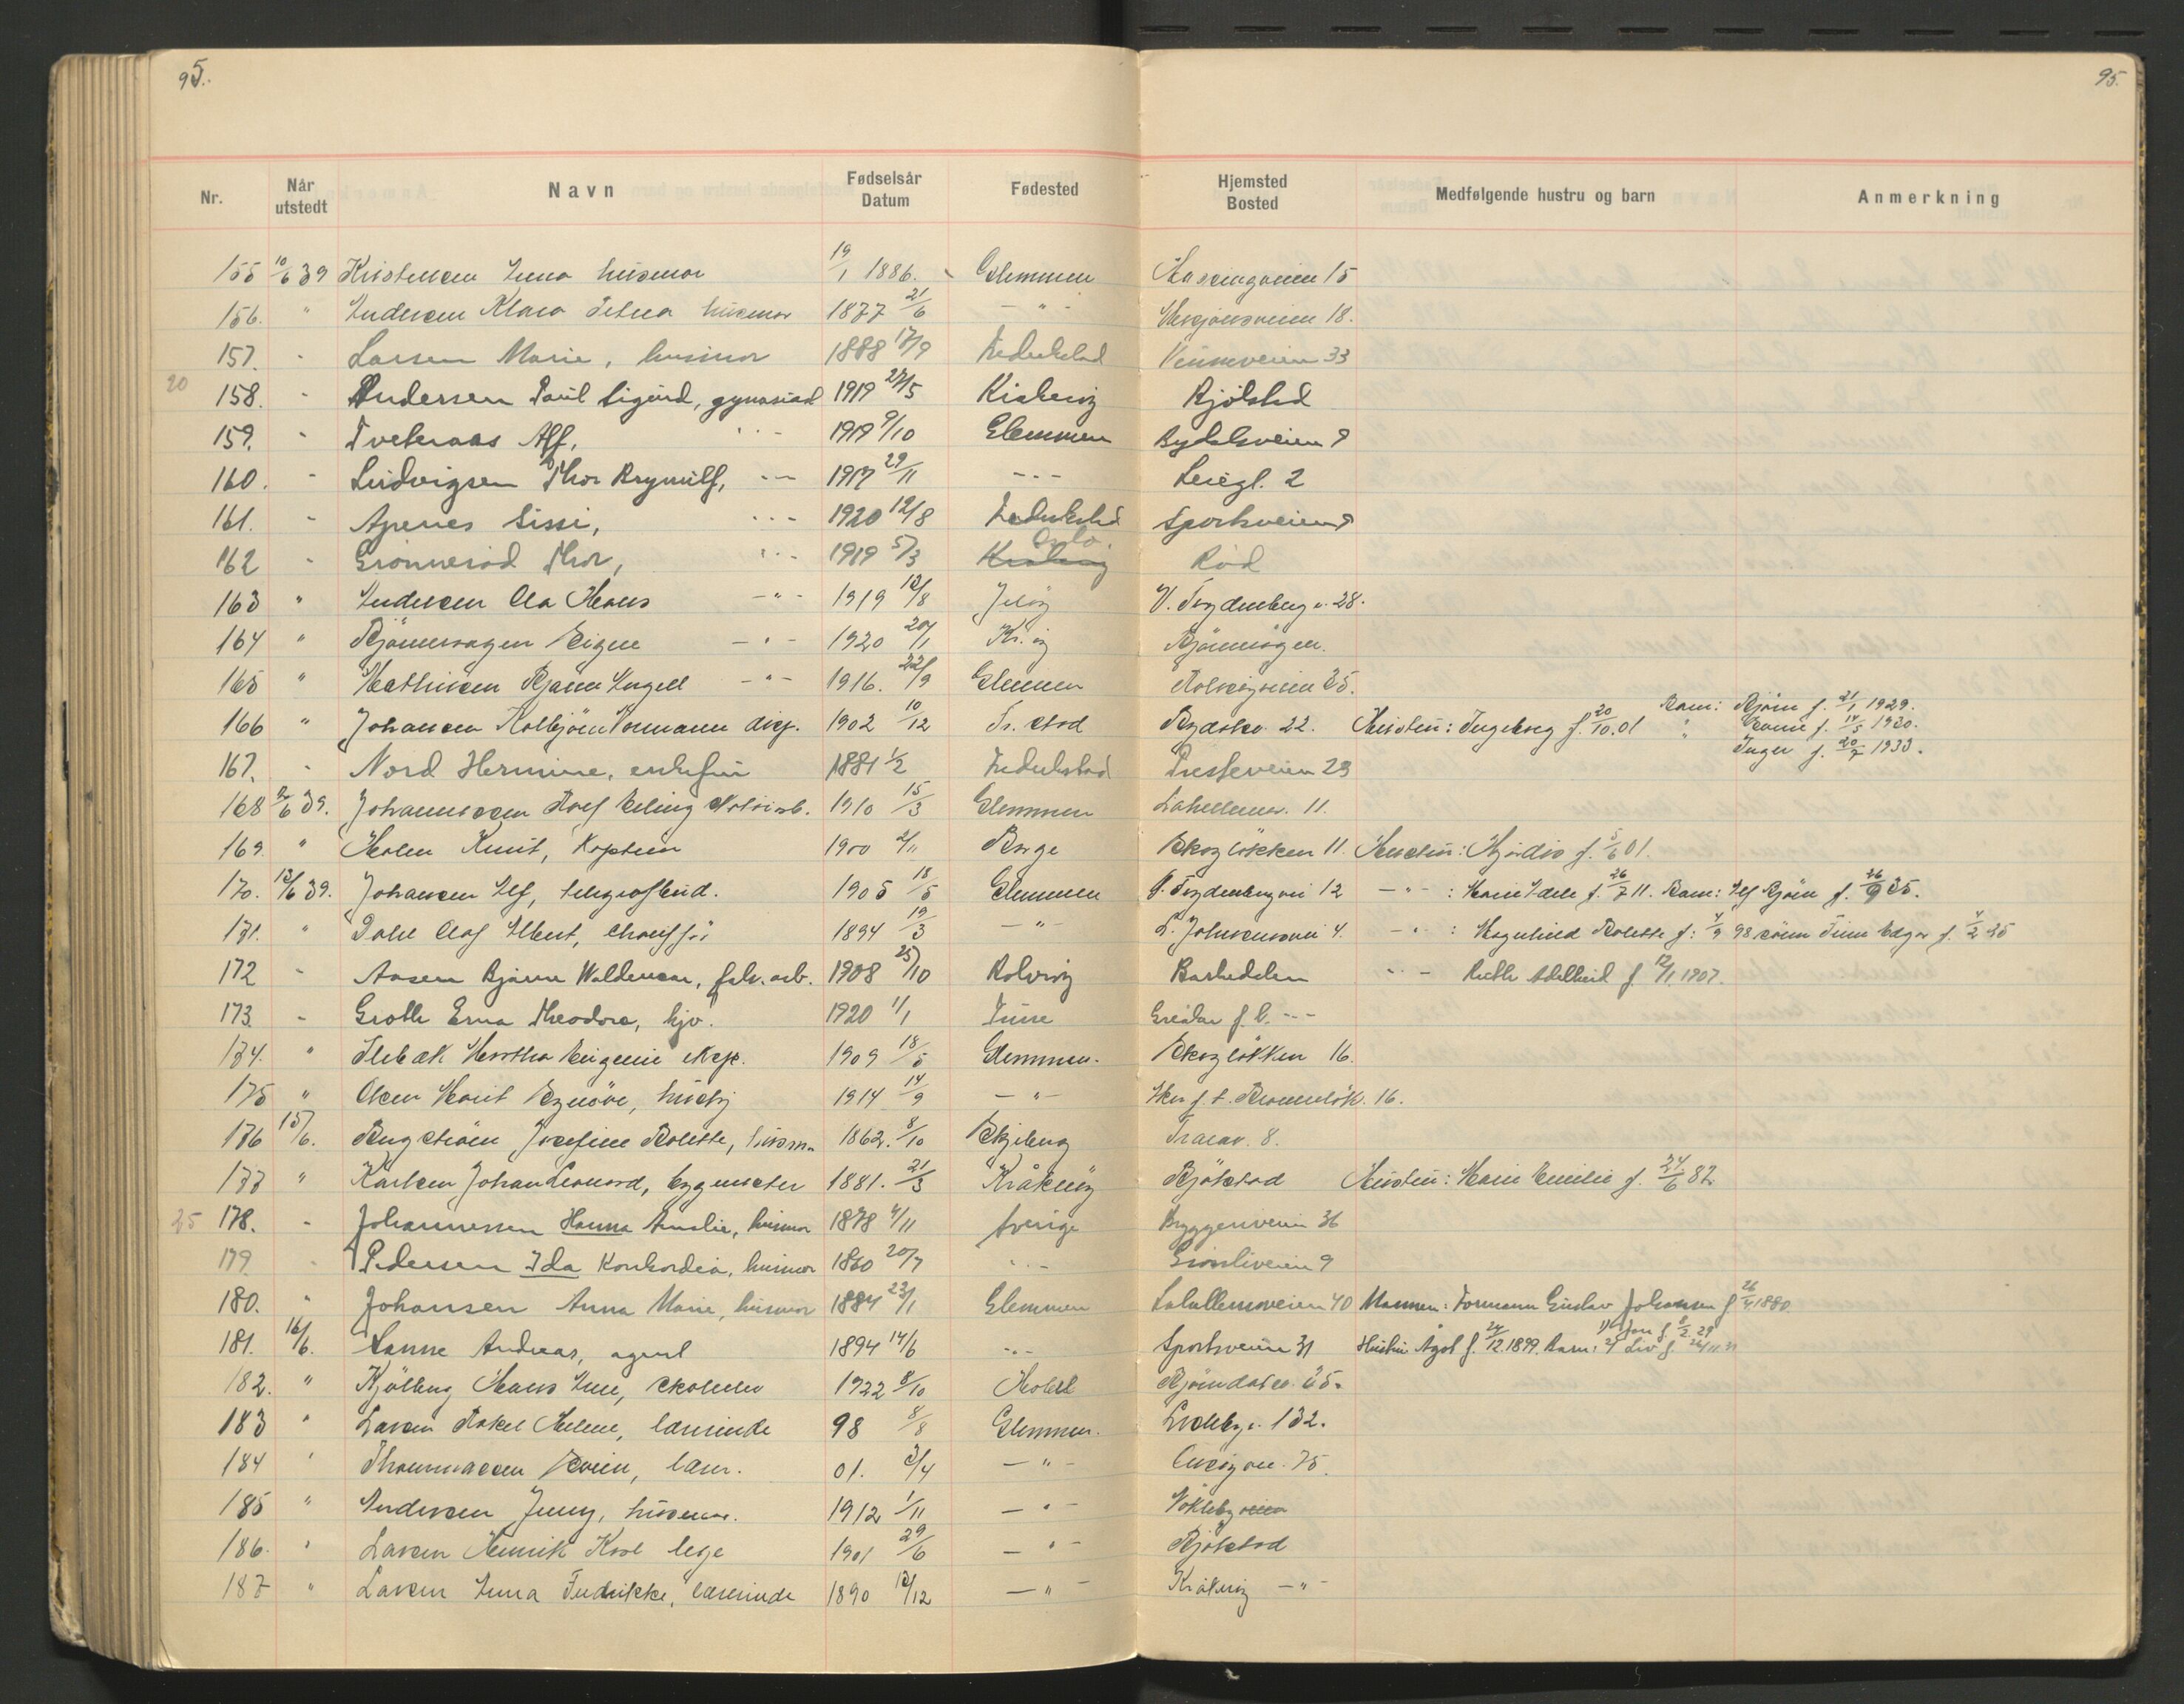 95.
95.
Nr. Når utstedt Navn Fødselsår Datum Fødested Hjemsted Bosted Medfølgende hustru og barn Anmerkning
155 10/6 39 Kristensen Anna husmor 19/1 1886. Glemmen 15
156. " Andersen Klara Petrea husmor 1877 21/6 — " — 18.
157. - Larsen Marie, husmor 1888 17/9 Fredrikstad 33
20 158. - Andersen Paul Sigurd, gymnasiast 1919 27/5 Kråkerøy Bjölstad
159. - Tveteraas Alf, " - 1919 9/10 Glemmen Bydalsveien 9
160. - Ludvigsen Thor Brynulf, - " - 1917 29/11 - " - Leiegl. 2
161. - Apenes Sissi, - " - 1920 12/8 Fredrikstad Sportsveien 9
162 - Grönneröd Thor, - " - 1919 5/3 Kråkerøy Oslo. Röd
163 " Andersen Ola Hans — " - 1919 12/8 Jeløy V. Trydenberg v. 28.
164 " Bjørneraagen Signe — " - 1920 20/1 Kr. øy
165 " Mathisen Bjarne Ingell — " - 1916. 22/9 Glemmen Rolvsøyveien 35.
166 " Johansen Kolbjörn Normann disp. 1902 10/12 Fr. stad Bydalsv. 22. Hustru: Ingeborg f. 20/10.01 Barn: Bjørn f. 21/1 1929.
" Sonni f. 14/5 1930.
Inger f. 20/7 1933.
167. - Nord Hermine, enkefru 1881 1/2 Fredrikstad Presteveien 23
168 12/6 39. Johannessen Rolf Erling 1910 15/3 Glemmen Lahellemv. 11.
169. " Holm Knut, Kaptein 1900 2/11 Borge Skogløkken 11. Hustru: Hjørdis f. 5/6 01.
170. 13/6 39. Johansen Alf, telegrafbud. 1905 18/5 Glemmen V. Trydenbergvei 12 — " — : Marie Adele f. 26/7 11. Barn: Alf Bjørn f. 26/9 35.
171. " Dahl Olaf Albert, chauffør 1894 19/3 — " — L. Johnsensvei 4. — " — : Magnhild Bolette f: 4/9 98 sønn Finn Edgar f. 4/2 25
172 - Aasen Bjarne Waldemar, fabr. arb. 1908 25/10 Rolvsøy " - Ruth Adelheid f 12/1. 1907.
173. - Groth Erna Theodora, hjv. 1920 1/1 Tune
174. " Ilebæk Martha Eugenie eksp. 1909 18/5 Glemmen. Skogløkken 16.
175 " Olsen Marit Synøve, hushj 1914 14/9 — " — 16.
176 15/6. Bergstrøm Josefine Bolette, husm. 1862. 8/10 Skjeberg Trarav. 8.
177 " Karlsen Johan Leonard, bygmester 1881. 21/3 Kråkerøy Bjølstad Hustru: Marie Emilie f. 24/6 82
25 178. - Johannessen Hanna Amalie, husmor 1878 4/11 Sverige Bryggeriveien 36
179. - Pedersen Ida Konkordia, husmor 1860 20/7 - " - Grönliveien 9
180. " Johansen Anna Marie, husmor 1884 23/1 Glemmen Lahellemsveien 40 Mannen: Formann Gustav Johansen f 26/4 1880.
181. 16/6. Sanne Andreas, agent 1894 14/6 - " - Sportsveien 31 Hustru Agot f. 24/12.1899. Barn: 1) Jon f. 8/2. 29 2) Liv f. 24/11 31
182. " Kjølberg Hans Arne, skoleelev 1922 8/10 Hobøl 25.
183 " Larsen Rakel Helene, lærerinde 98 8/8 Glemmen. Lisleby v. 132.
184 " Thommassen Svein, lærer. 01. 3/4 — " — Onsøyvei. 75.
185 " Andersen Jenny, husmor. 1912 1/11 — " — Nøkleby veien
186. " Larsen Henrik Karl lege 1901 29/6 — " — Bjølstad
187 " Larsen Anna Fredrikke, lærerinde 1890 12/12 — " — Kråkerøy — " —